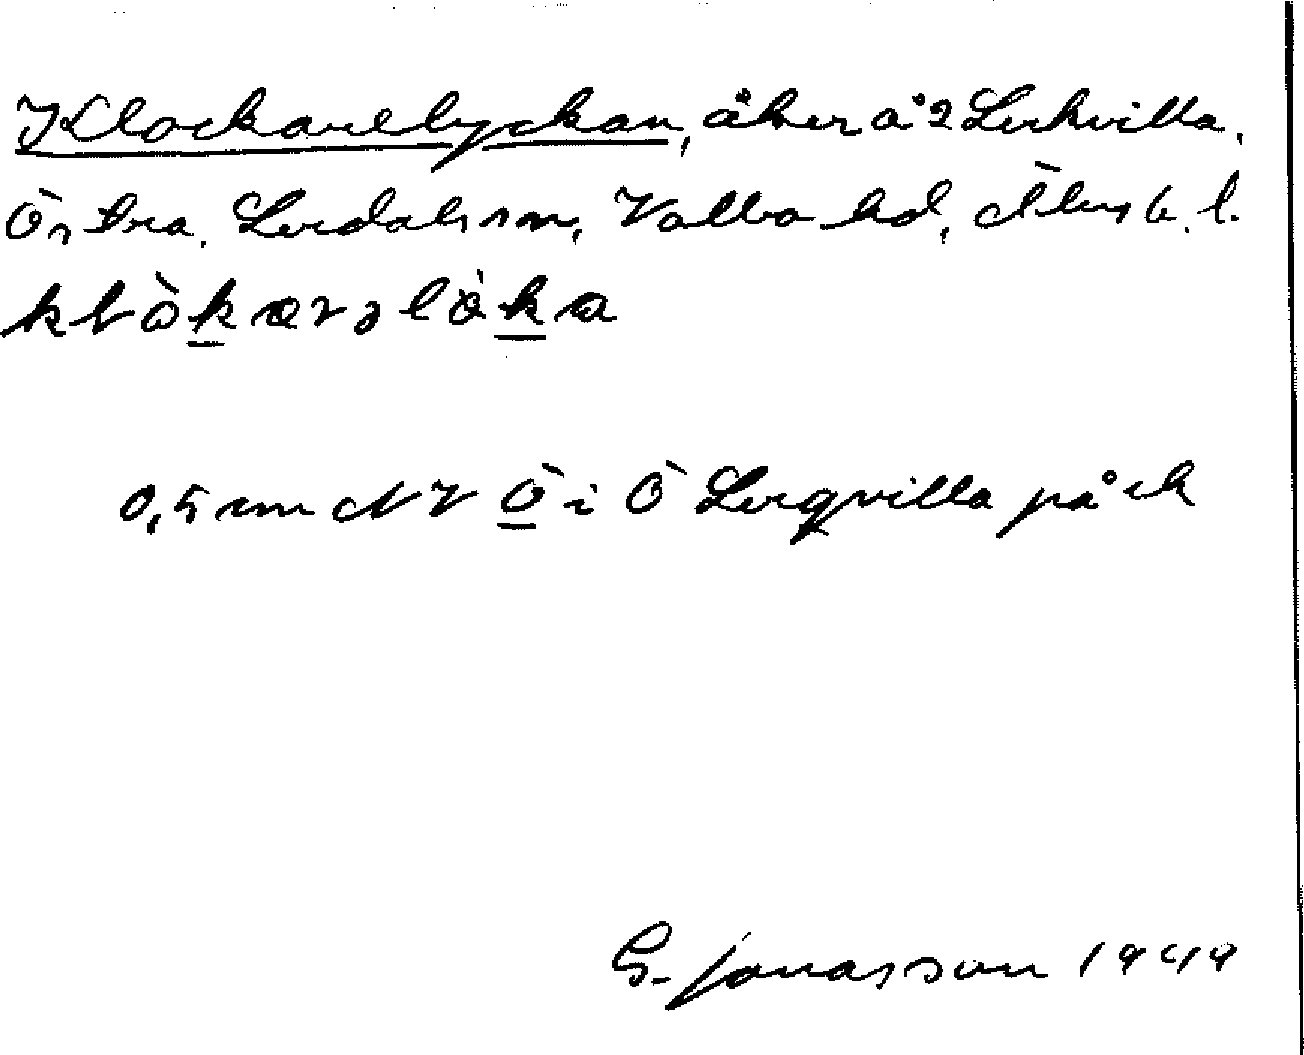 Klockarelyckan, åker å 2 Lerkvilla,
Östra, Lerdals sn, Valbo hd, Älvsb. l.
klòkarəlòka
0,5 cm NV Ö i Ö Lerqvilla på ek
G. Jonasson 1949